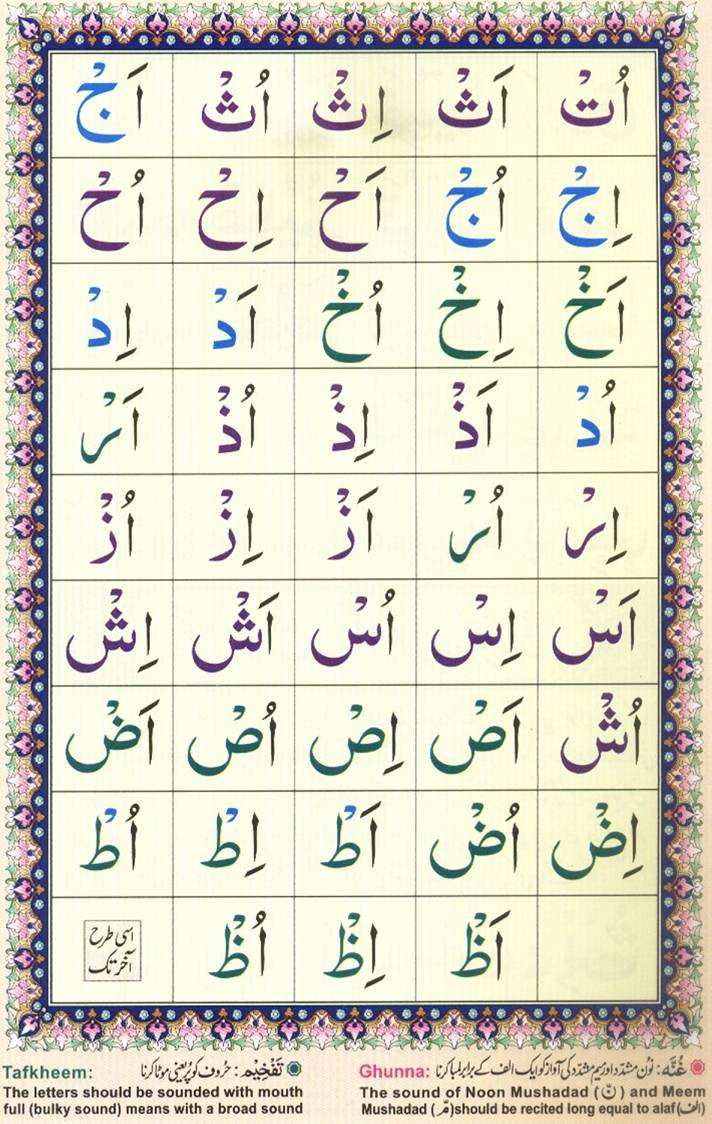 اُتْ اَثْ اِثْ اُثْ اَجْ
اِجْ اُجْ اَحْ اِحْ اُحْ
اَخْ اِخْ اُخْ اَدْ اِدْ
اُدْ اَذْ اِذْ اُذْ اَرْ
اِرْ اُرْ اَزْ اِزْ اُزْ
اَسْ اِسْ اُسْ اَشْ اِشْ
اُشْ اَصْ اِصْ اُصْ اَضْ
اِضْ اُضْ اَطْ اِطْ اُطْ
اَظْ اِظْ اُظْ
اسی طرح
آخر تک
غُنَّه: نون مشدّد اور میم مشدّد کی آواز کو ایک الف کے برابر لمبا کرنا
Ghunna:
The sound of Noon Mushadad (نّ) and Meem
Mushadad (مّ)should be recited long equal to alaf(الف)
تَفْخِیْم: حُروف کو پُر یعنی موٹا کرنا
Tafkheem:
The letters should be sounded with mouth
full (bulky sound) means with a broad sound